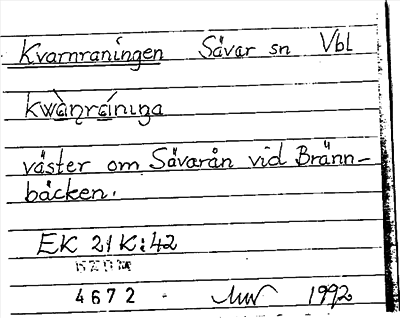 Kvarnraningen Sävar sn Vbl
kwà̀ṇrániṇa
väster om Sävarån vid Bränn-
bäcken.
EK 21K:42
4672 1992